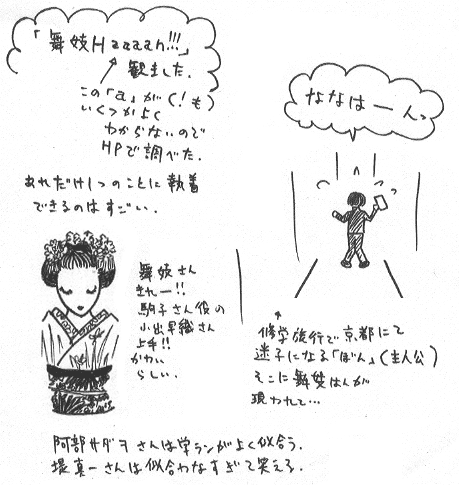 「舞妓Haaaan!!!」
観ました.
この「a」が(!も)
いくつかよく
わからないので
HPで調べた.
あれだけ1つのことに執着
できるのはすごい.
ななはーんっ
舞妓さん
きれー!!
駒子さん役の
小出早織さん
上手!!
かわい
らしい.
修学旅行で京都にて
迷子になる「ぼん」(主人公)
そこに舞妓はんが
現われて…
阿部サダヲさんは学ランがよく似合う.
堤真一さんは似合わなすぎて笑える.